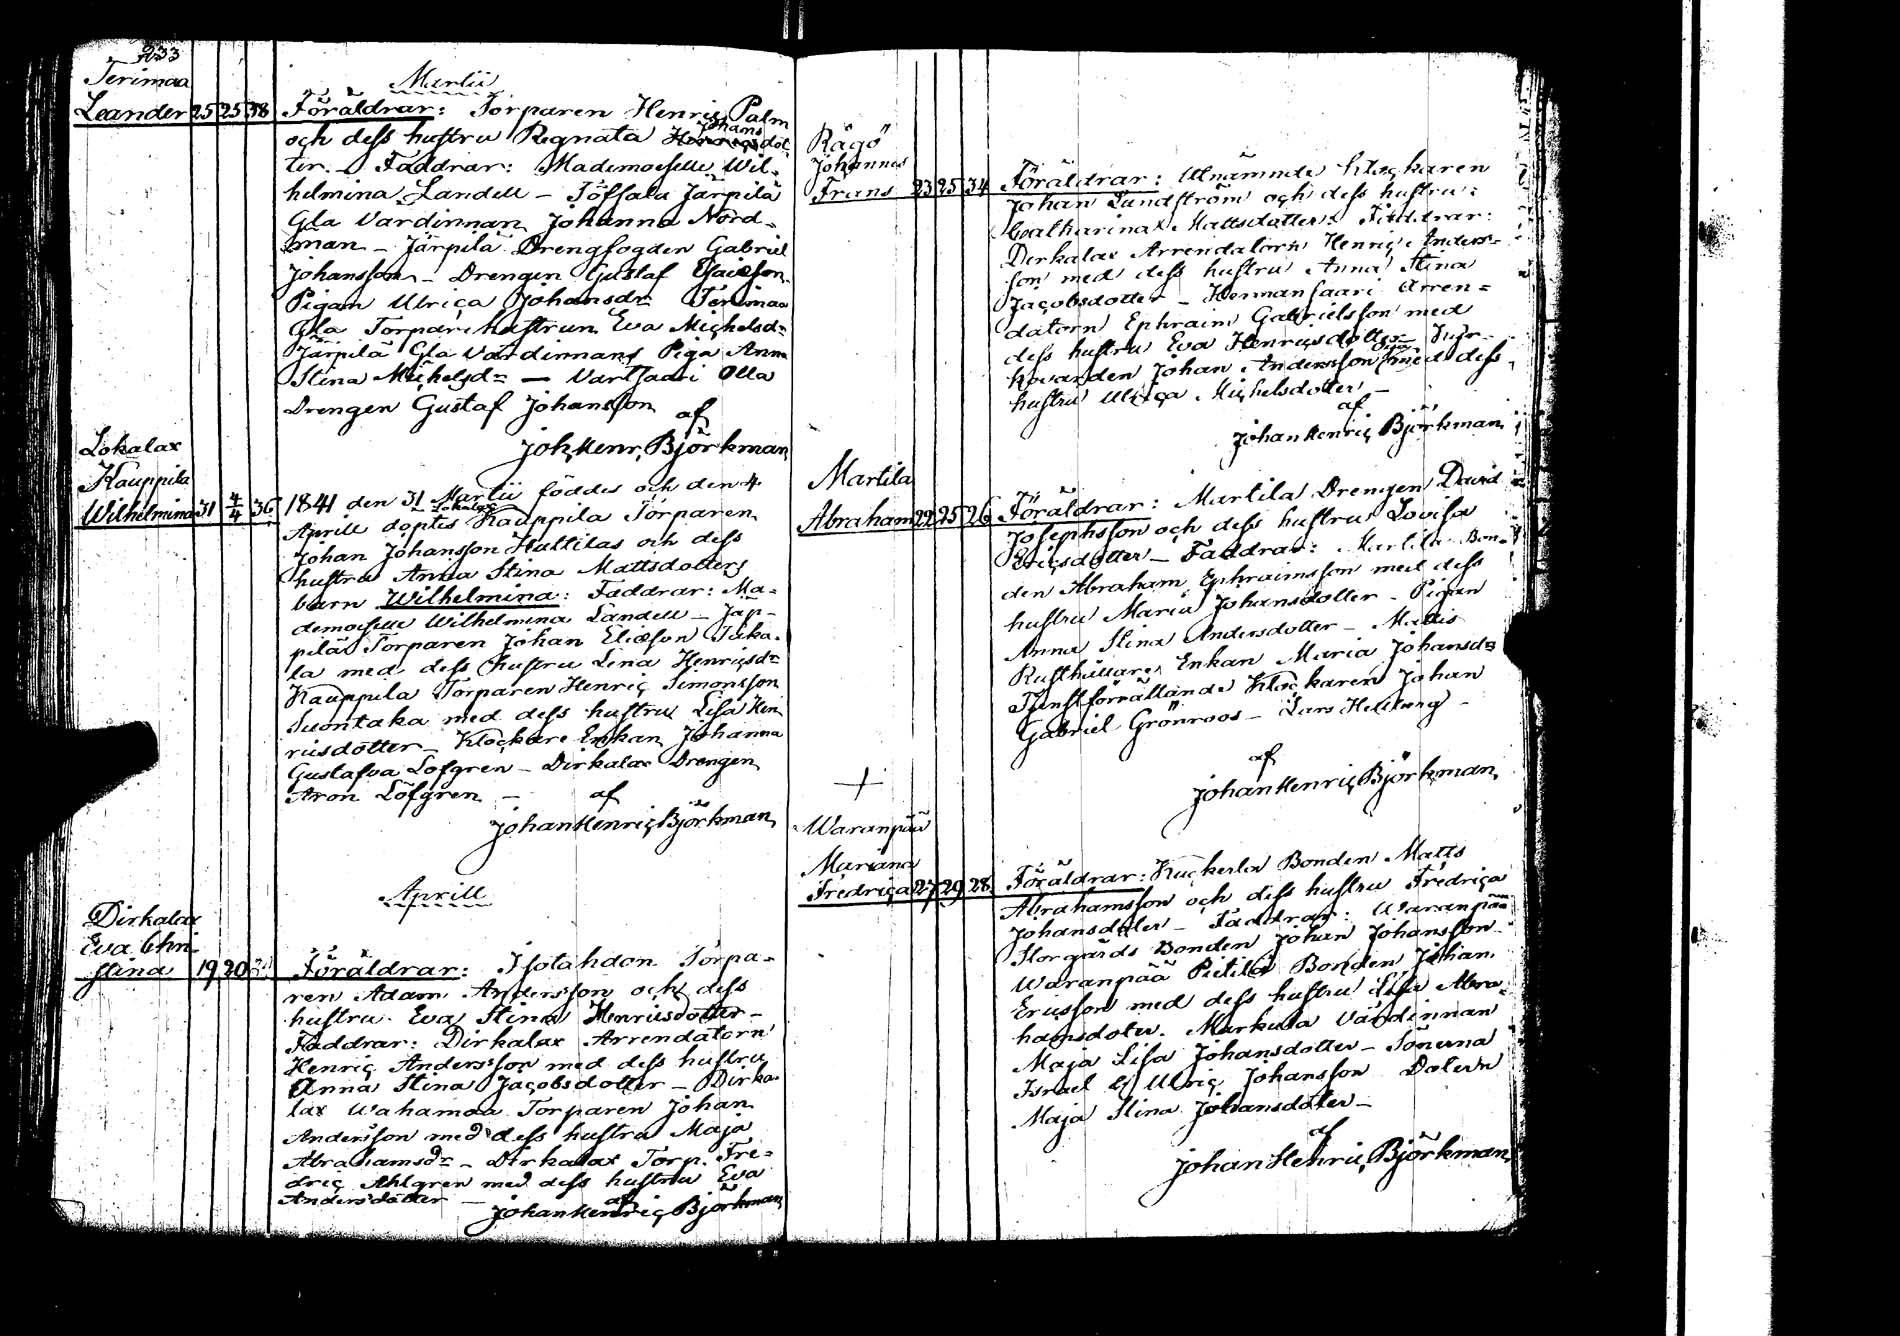 233
Terimaa
Martii
Leander 25 25 38 Föräldrar: Torparen Henric Palm
och dess hustru Regnata Johans dot
ter. – Faddrar: Mademoiselle Wil-
helmina Landell – Töffala Järpilä
Gla Värdinnan Johanna Nord-
man – Järpilä Drengfogden Gabriel
Johansson – Drengen Gustaf Esaiesson
Pigan Ulrica Johansdr Terimaa
Gla Torpare hustrun Eva Michelsdr
Järpilä Gla Värdinnans Piga Anna
Stina Michelsdr – Vartsaari Olla
Drengen Gustaf Johansson af
Joh, Henr, Björkman
Lokalax
Kauppila
Wilhelmina 31 4/4 36 1841 den 31 Martii föddes och den 4
Aprill döptes Lokalax Kauppila Torparen
Johan Johansson Huttilas och dess
hustru Anna Stina Mattsdotters
barn Wilhelmina: Faddrar: Ma-
demoiselle Wilhelmina Landell – Jär-
pilä Torparen Johan Eliæson
la med dess hustru Lena Henricsdr
Kauppila Torparen Henric Simonsson
Suontaka med dess hustru Lisa Hen
ricsdotter – Klockare Enkan Johanna
Gustafva Löfgren – Dirkalax Drengen
Aron Löfgren – af
Johan Henric Björkman
Aprill
Dirkalax
Eva Chri-
stina 19 20 Föräldrar: Isotahdon Torpa-
ren Adam Andersson och dess
hustru Eva Stina Henricsdotter –
Faddrar: Dirkalax Arrendatorn
Henric Andersson med dess hustru
Anna Stina Jacobsdotter – Dirka-
lax Wahamaa Torparen Johan
Andersson med dess hustru Maja
Abrahamsdr – Dirkalax Torp. Fre-
dric Ahlgren med dess hustru Eva
Andersdotter – af
Johan Henric Björkman
Rägö
Johannes
Frans 23 25 34 Föräldrar: Utnämnde Klockaren
Johan Lundström och dess hustru
Catharina Mattsdotter: Faddrar:
Dirkalax Arrendatorn Henric Anders-
son med dess hustru Anna Stina
Jacobsdotter – Hermansaari Arren-
datorn Ephraim Gabrielsson med
dess hustru Eva Henricsdotter
Johan Andersson med dess
hustru Ulrica Michelsdotter –
af
Johan Henric Björkman
Martila
Abraham 22 25 26 Föräldrar: Martila Drengen David
Josephsson och dess hustru Lovisa
Ericsdotter – Faddrar: Martila Bon-
den Abraham Ephraimsson med dess
hustru Maria Johansdotter – Pigan
Anna Stina Andersdotter – Mattis
Rusthållare Enkan Maria Johansdr
Tjenstförrättande Klockaren Johan
Gabriel Grönroos – Lars Hellberg –
af
Johan Henric Björkman
+
Waranpää
Mariana
Fredrica 27 29 28 Föräldrar: Kuckerla Bonden Matts
Abrahamsson och dess hustru Fredrica
Johansdoter – Faddrar: Waranpää
Storgårds Bonden Johan Johansson –
Waranpää Pietilä Bonden Johan
Ericsson med dess hustru Lisa Abra-
hamsdoter. Markula Värdinnan
Maja Lisa Johansdotter – Sönerna
Israel & Ulric Johansson Dotern
Maja Stina Johansdoter –
af
Johan Henric Björkman